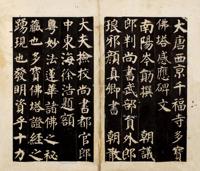 大唐西京千福寺多寶
佛塔感應碑文
南陽岑勛撰 朝議
郎判尚書武部員外郎
琅邪顏真卿書 朝散
大夫撿校尚書都官郎
中東海徐浩題額
粵妙法蓮華諸佛之秘
藏也多寶佛塔證經之
踴現也發明資乎十力